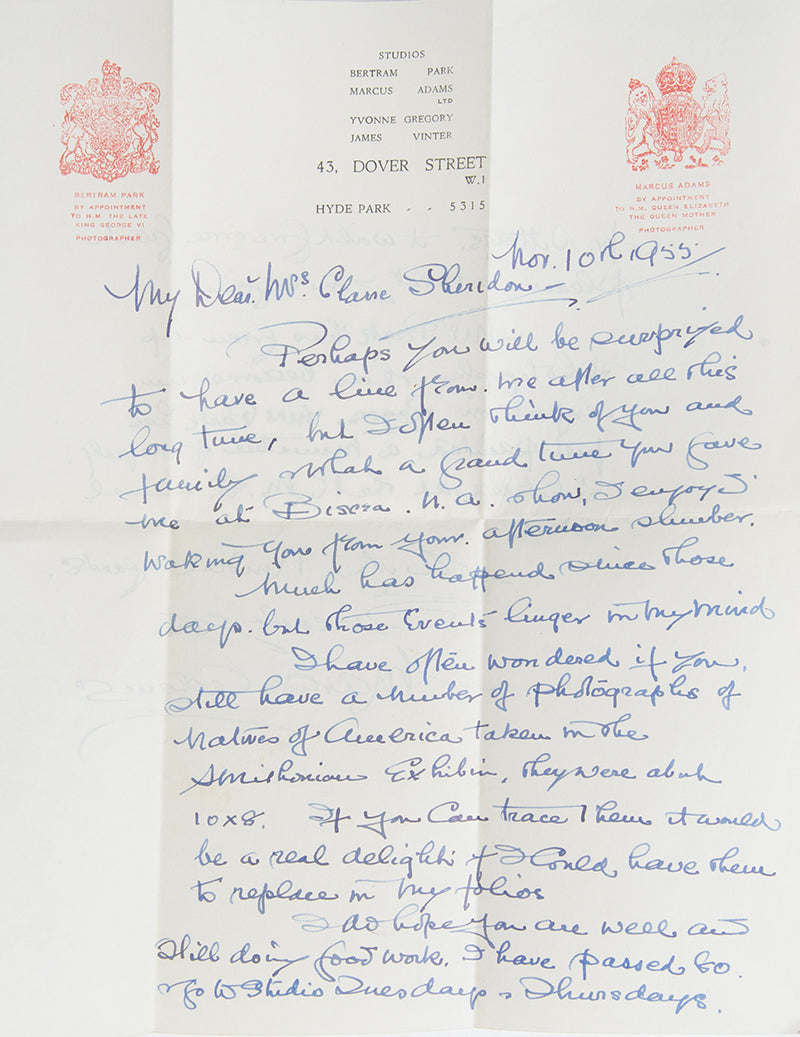 STUDIOS
BERTRAM PARK
MARCUS ADAMS
LTD
YVONNE GREGORY
JAMES VINTER
43, DOVER STREET
W.1
HYDE PARK - - 5315
BERTRAM PARK
BY APPOINTMENT
TO H.M. THE LATE
KING GEORGE VI
PHOTOGRAPHER
MARCUS ADAMS
BY APPOINTMENT
TO H.M. QUEEN ELIZABETH
THE QUEEN MOTHER
PHOTOGRAPHER
Nov. 10th 1955
My Dear Mrs Clare Sheridon
Perhaps you will be surprized
to have a line from me after all this
long time, but I often think of you and
family what a grand time you gave
me at Biscra. N.A. show, I enjoyed
waking you from your afternoon slumber.
Much has happend since those
days. but those events linger in my mind
I have often wondered if you,
still have a number of photographs of
Natives of America taken in the
Exhibin, they were about
10x8. If you can trace them it would
be a real delight if I could have them
to replace in my folios
I do hope you are well and
still doing good work. I have passed 80.
& go to Studio Tuesdays & Thursdays.